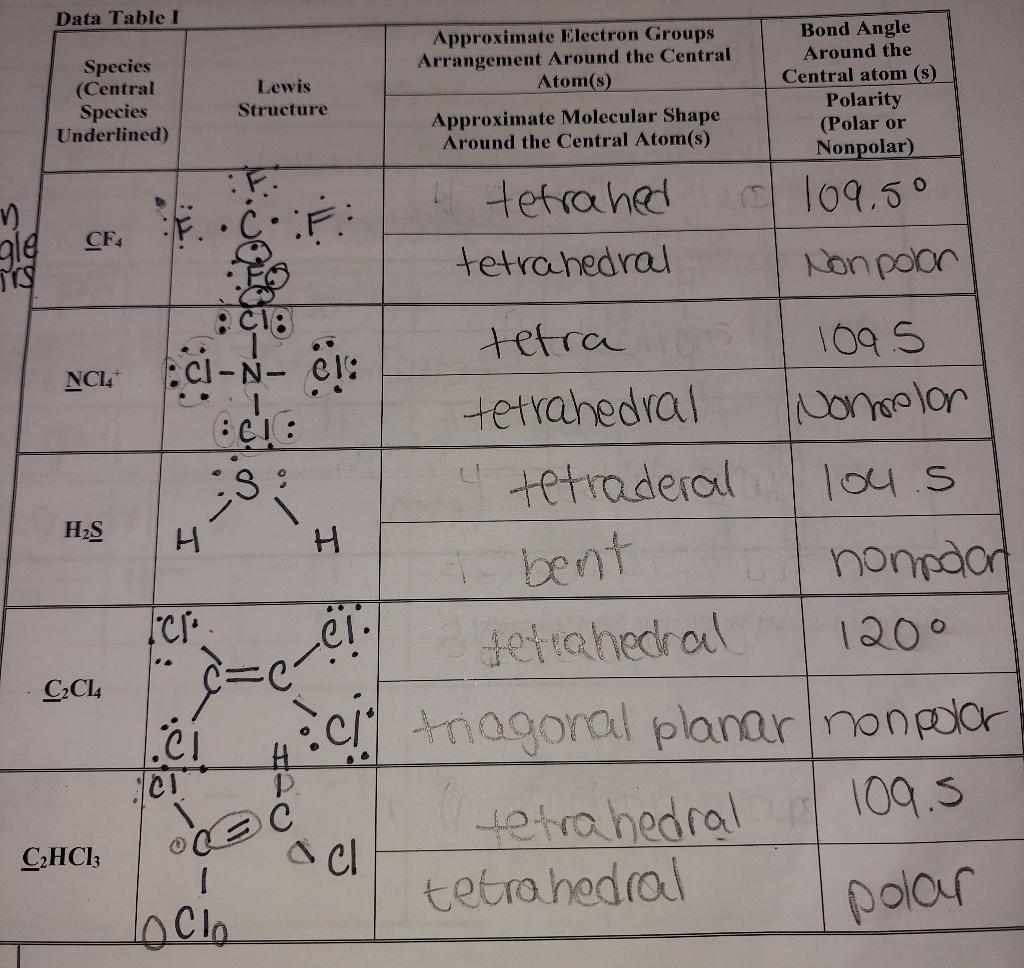 Data Table I
Species
(Central
Species
Underlined)
Lewis
Structure
Approximate Electron Groups
Arrangement Around the Central
Atom(s)
Approximate Molecular Shape
Around the Central Atom(s)
Bond Angle
Around the
Central atom (s)
Polarity
(Polar or
Nonpolar)
CF₄
F
F C F
F
tetrahed
109.5°
tetrahedral
Nonpolar
NCl₄⁺
Cl
Cl-N-Cl
Cl
tetra
109.5
tetrahedral
Nonpolar
H₂S
S
H H
4 tetraderal
104.5
bent
nonpolar
C₂Cl₄
Cl Cl
C=C
Cl Cl
tetrahedral
120°
triagonal planar
nonpolar
C₂HCl₃
Cl H
C=C
Cl
Cl
tetrahedral
109.5
tetrahedral
polar